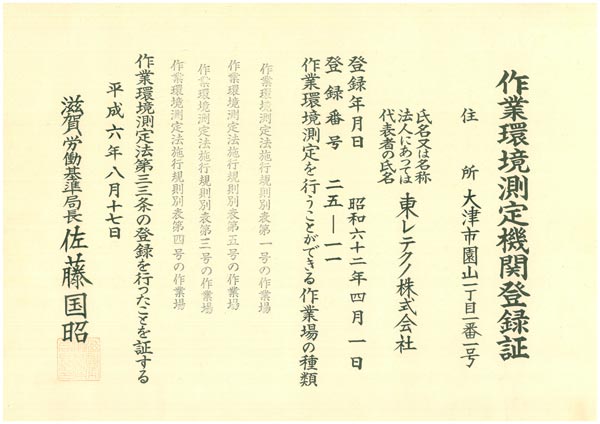 作業環境測定機関登録証
住所 大津市園山一丁目一番一号
氏名又は名称
法人にあつては
代表者の氏名
東レテクノ株式会社
登録年月日 昭和六十二年四月一日
登録番号 二五―一一
作業環境測定を行うことができる作業場の種類
作業環境測定法施行規則別表第一号の作業場
作業環境測定法施行規則別表第五号の作業場
作業環境測定法施行規則別表第三号の作業場
作業環境測定法施行規則別表第四号の作業場
作業環境測定法第三三条の登録を行ったことを証する
平成六年八月十七日
滋賀労働基準局長 佐藤国昭